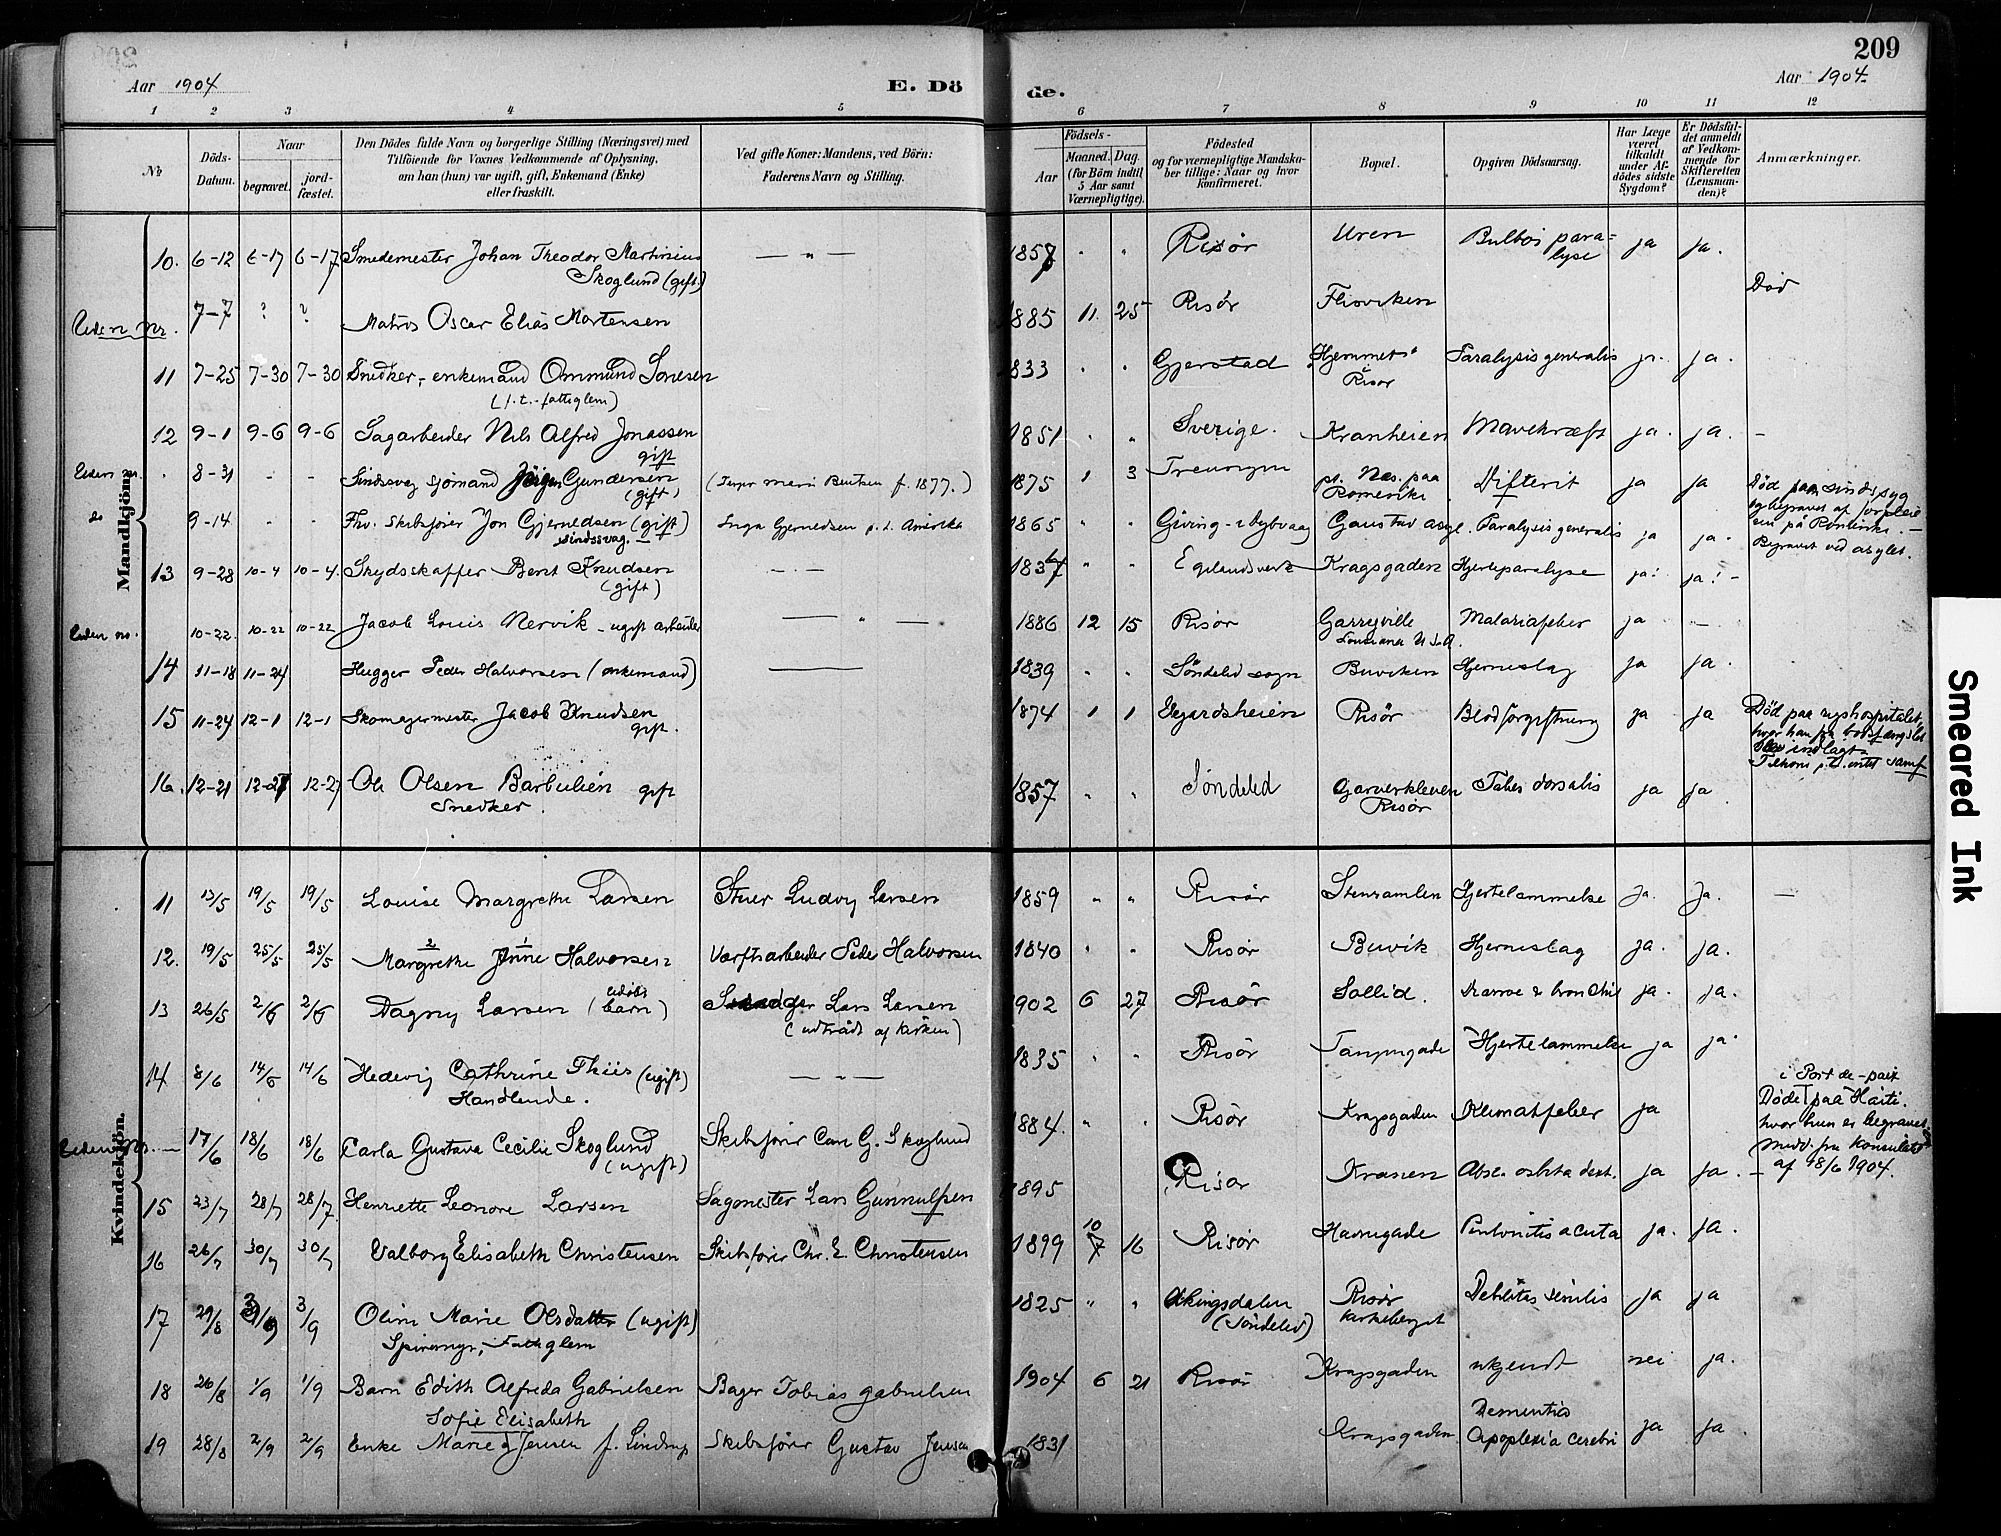 209
Aar 1904
E. Dö
de.
Aar 1904.
1 2 3 4 5 6 7 8 9 10 11 12
No
Döds-
Datum.
Naar
begravet.
jord-
fæstet.
Den Dödes fulde Navn og borgerlige Stilling (Næringsvei) med
Tilföiende for Voxnes Vedkommende af Oplysning,
om han (hun) var ugift, gift, Enkemand (Enke)
eller fraskilt.
Ved gifte Koner: Mandens, ved Börn:
Faderens Navn og Stilling.
Födsels-
Aar
Maaned. Dag
(for Börn indtil
5 Aar samt
Værnepligtige).
Födested
og for værnepligtige Mandska-
ber tillige: Naar og hvor
konfirmeret.
Bopæl.
Opgiven Dödsaarsag.
Har Læge
været
tilkaldt
under Af-
dödes sidste
Sygdom?
Er Dödsfal-
det anmeldt
af Vedkom-
mende for
Skifteretten
(Lensman-
den)?
Anmærkninger.
Mandkjön.
10. 6-12 6-17 6-17 Smedemester Johan Theodor Martinius — „ — 1857 „ „ Risør Uren Bulbær para= ja ja.
Skoglund (gift) lyse
Uden Nr. 7-7 ? ? Matros Oscar Elias Mortensen 1885 11. 25 Risør Flisviken Død
11 7-25 7-30 7-30 Snedker, enkemand Ommund Sonesen 1833 „ „ Gjerstad Hjemmet Paralysis generalis ja. ja.
(f. t. fattiglem) Risør
12 9-1 9-6 9-6 Sagarbeider Nils Alfred Jonassen 1851 „ „ Sverige. Kranheien Mavekræft ja. ja. -
gift
Uden nr. 8-31 - - Sindssvag sjømand Jörgen Gundersen 1875 1 3 pt. Næs. paa Difterit ja ja
(gift) Romerike
do 9-14 - - Fhv. skibsfører Jon Gjernedsen (gift) Inga Gjernedsen p.t. Amerika 1865 „ „ Gaustad asyl. Paralysis generalis ja ja.
sindssvag. Begravet ved asylet.
13 9-28 10-4 10-4. Skydsskaffer Bent Knudsen 1837 „ „ Egelandsverk Kragsgaden Hjerteparalyse ja. ja. -
(gift)
Uden no. 10-22. 10-22 10-22 Jacob Louis Nervik - ugift arbeider — „ — 1886 12 15 Risør Garryville Malariafeber ja —
Louisiana U.S.A.
14 11-18 11-24 Hugger Peder Halvorsen (enkemand) — 1839 „ „ Söndeled sogn Buviken Hjerneslag ja ja.
15 11-24 12-1 12-1 Skomagermester Jacob Knudsen 1874 1 1 Vegardsheien Risør Blodforgiftning ja ja Död paa rigshospitalet,
gift. hvor han fra bodsfængslet
blev indlagt.
16. 12-21 12-27 12-27 Ole Olsen Barbulien gift 1857 „ „ Söndeled Garverkleven Tabes dorsalis ja ja
Snedker. Risør
Kvindekjön.
11 13/5 19/5 19/5 Louise Margrethe Larsen Stuer Ludvig Larsen 1859 „ „ Risør Stensamlen Hjertelammelse Ja. Ja. —
12. 19/5 25/5 25/5 Margrethe Anne Halvorsen Værftsarbeider Peder Halvorsen 1840 „ „ Risør Buvik Hjerneslag ja. ja.
13 26/5 2/6 2/6 Dagny Larsen (udøbt barn) Lars Larsen 1902 6 27 Risør Sollid. ja. ja.
(udtrådt af kirken)
14 8/6 14/6 14/6 Hedevig Cathrine Thiis (ugift) — „ — 1835 „ „ Risør Tangengade Hjertelammelse ja ja.
Handlende.
Uden Nr. — 17/6 18/6 18/6 Carla Gustava Cecilie Skoglund Skibsfører Carl G. Skoglund 1884. „ „ Risør Kragsgaden Klimatfeber ja
(ugift)
i Port de-paix
Döde paa Haiti.
hvor hun er begravet.
Medd. fra konsulatet
af 18/6 1904.
15 23/7 28/7 28/7. Henriette Leonore Larsen Sagmester Lars Gunnulfsen 1895 Risør Kranen ja ja. -
16 26/7 30/7 30/7 Valborg Elisabeth Christensen Skibsfører Chr. E. Christensen 1899 10 16 Risør Havnegade Peritonitis acuta ja. ja.
17 29/8 3/9 3/9 Oline Marie Olsdatter (ugift) 1825 „ „ Akingsdalen Risør Debilitas senilis ja ja
Fattiglem (Söndeled) Kirkeberget
18 26/8 1/9 1/9 Barn Edith Alfreda Gabrielsen Bager Tobias Gabrielsen 1904 6 21 Risør Kragsgaden ukjendt nei ja.
Sofie Elisabeth Dementia
19 28/8 2/9 2/9 Enke Marie Jensen f. Lindrup Skibsfører Gustav Jensen 1831 Kragsgaden Apoplexia cerebri ja ja.
Smeared Ink